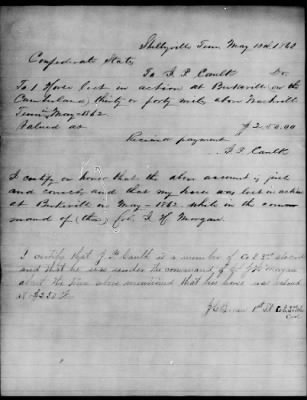 Shelbyville Tenn May 13d 1863
Confederate States
To J. P. Caulk Dr.
To 1 Horse lost in action at Burksville on the
Cumberland, thirty or forty miles above Nashville
Tenn in May - 1862
Valued at $250.00
Received payment
J. P. Caulk
I certify on honor that the above account is just
and correct, and that my horse was lost in action
at Burksville in May - 1862 while in the com-
mand of (then) Col. J. H. Morgan.
I certify that J. P. Caulk is a member of Co
and that he was under the command of J H Morgan
about the time above mentioned that his horse was valued
at $250
1st Lt